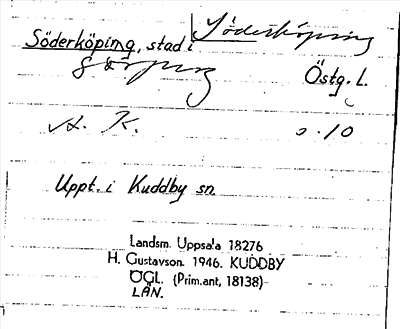 Söderköping
Söderköping, stad i
Östg. L.
A. K. s. 10
Uppt. i Kuddby sn
Landsm. Uppsala 18276
H. Gustavson. 1946. KUDDBY
ÖGL. (Prim.ant, 18138)
LÄN.